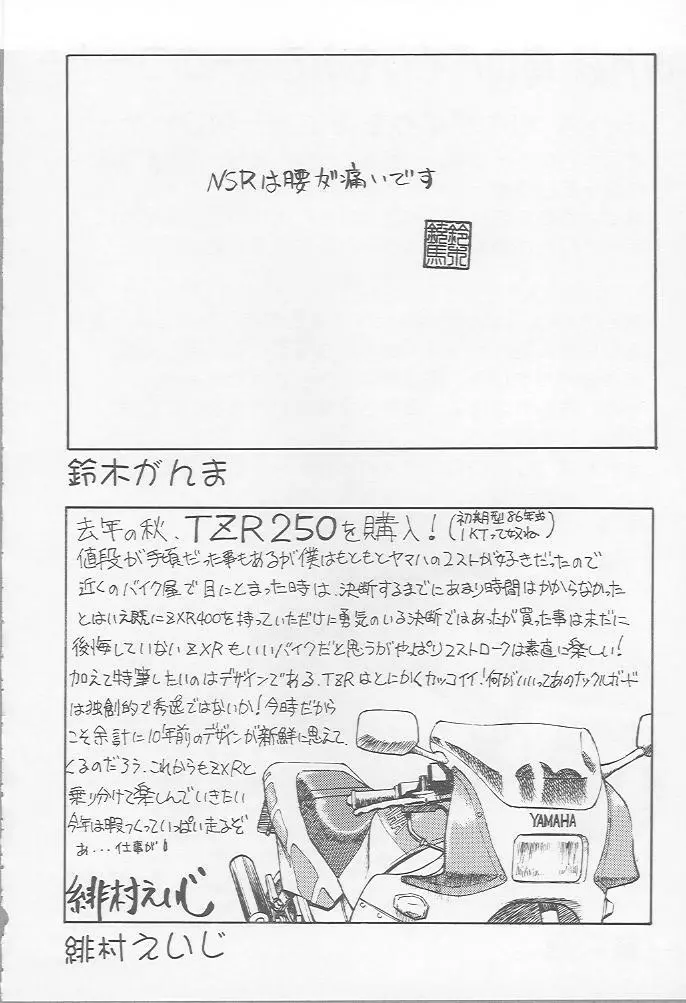 NSRは腰が痛いです
鈴木
鏡馬
鈴木がんま
去年の秋、TZR250を購入！(初期型86年式
1KTって奴ね)
値段が手頃だった事もあるが僕はもともとヤマハの2ストが好きだったので
近くのバイク屋で目にとまった時は、決断するまでにあまり時間はかからなかった
とはいえ既にZXR400を持っていただけに勇気のいる決断ではあったが買った事は未だに
後悔していないZXRもいいバイクだと思うがやっぱり2ストロークは素直に楽しい！
加えて特筆したいのはデザインである、TZRはとにかくカッコイイ！何がいいってあのナックルガード
は独創的で秀逸ではないか！今時だから
こそ余計に10年前のデザインが新鮮に思えて
くるのだろう、これからもZXRと
乗り分けて楽しんでいきたい
今年は暇つくっていっぱい走るぞ
あ...仕事が！
YAMAHA
緋村えいじ
緋村えいじ